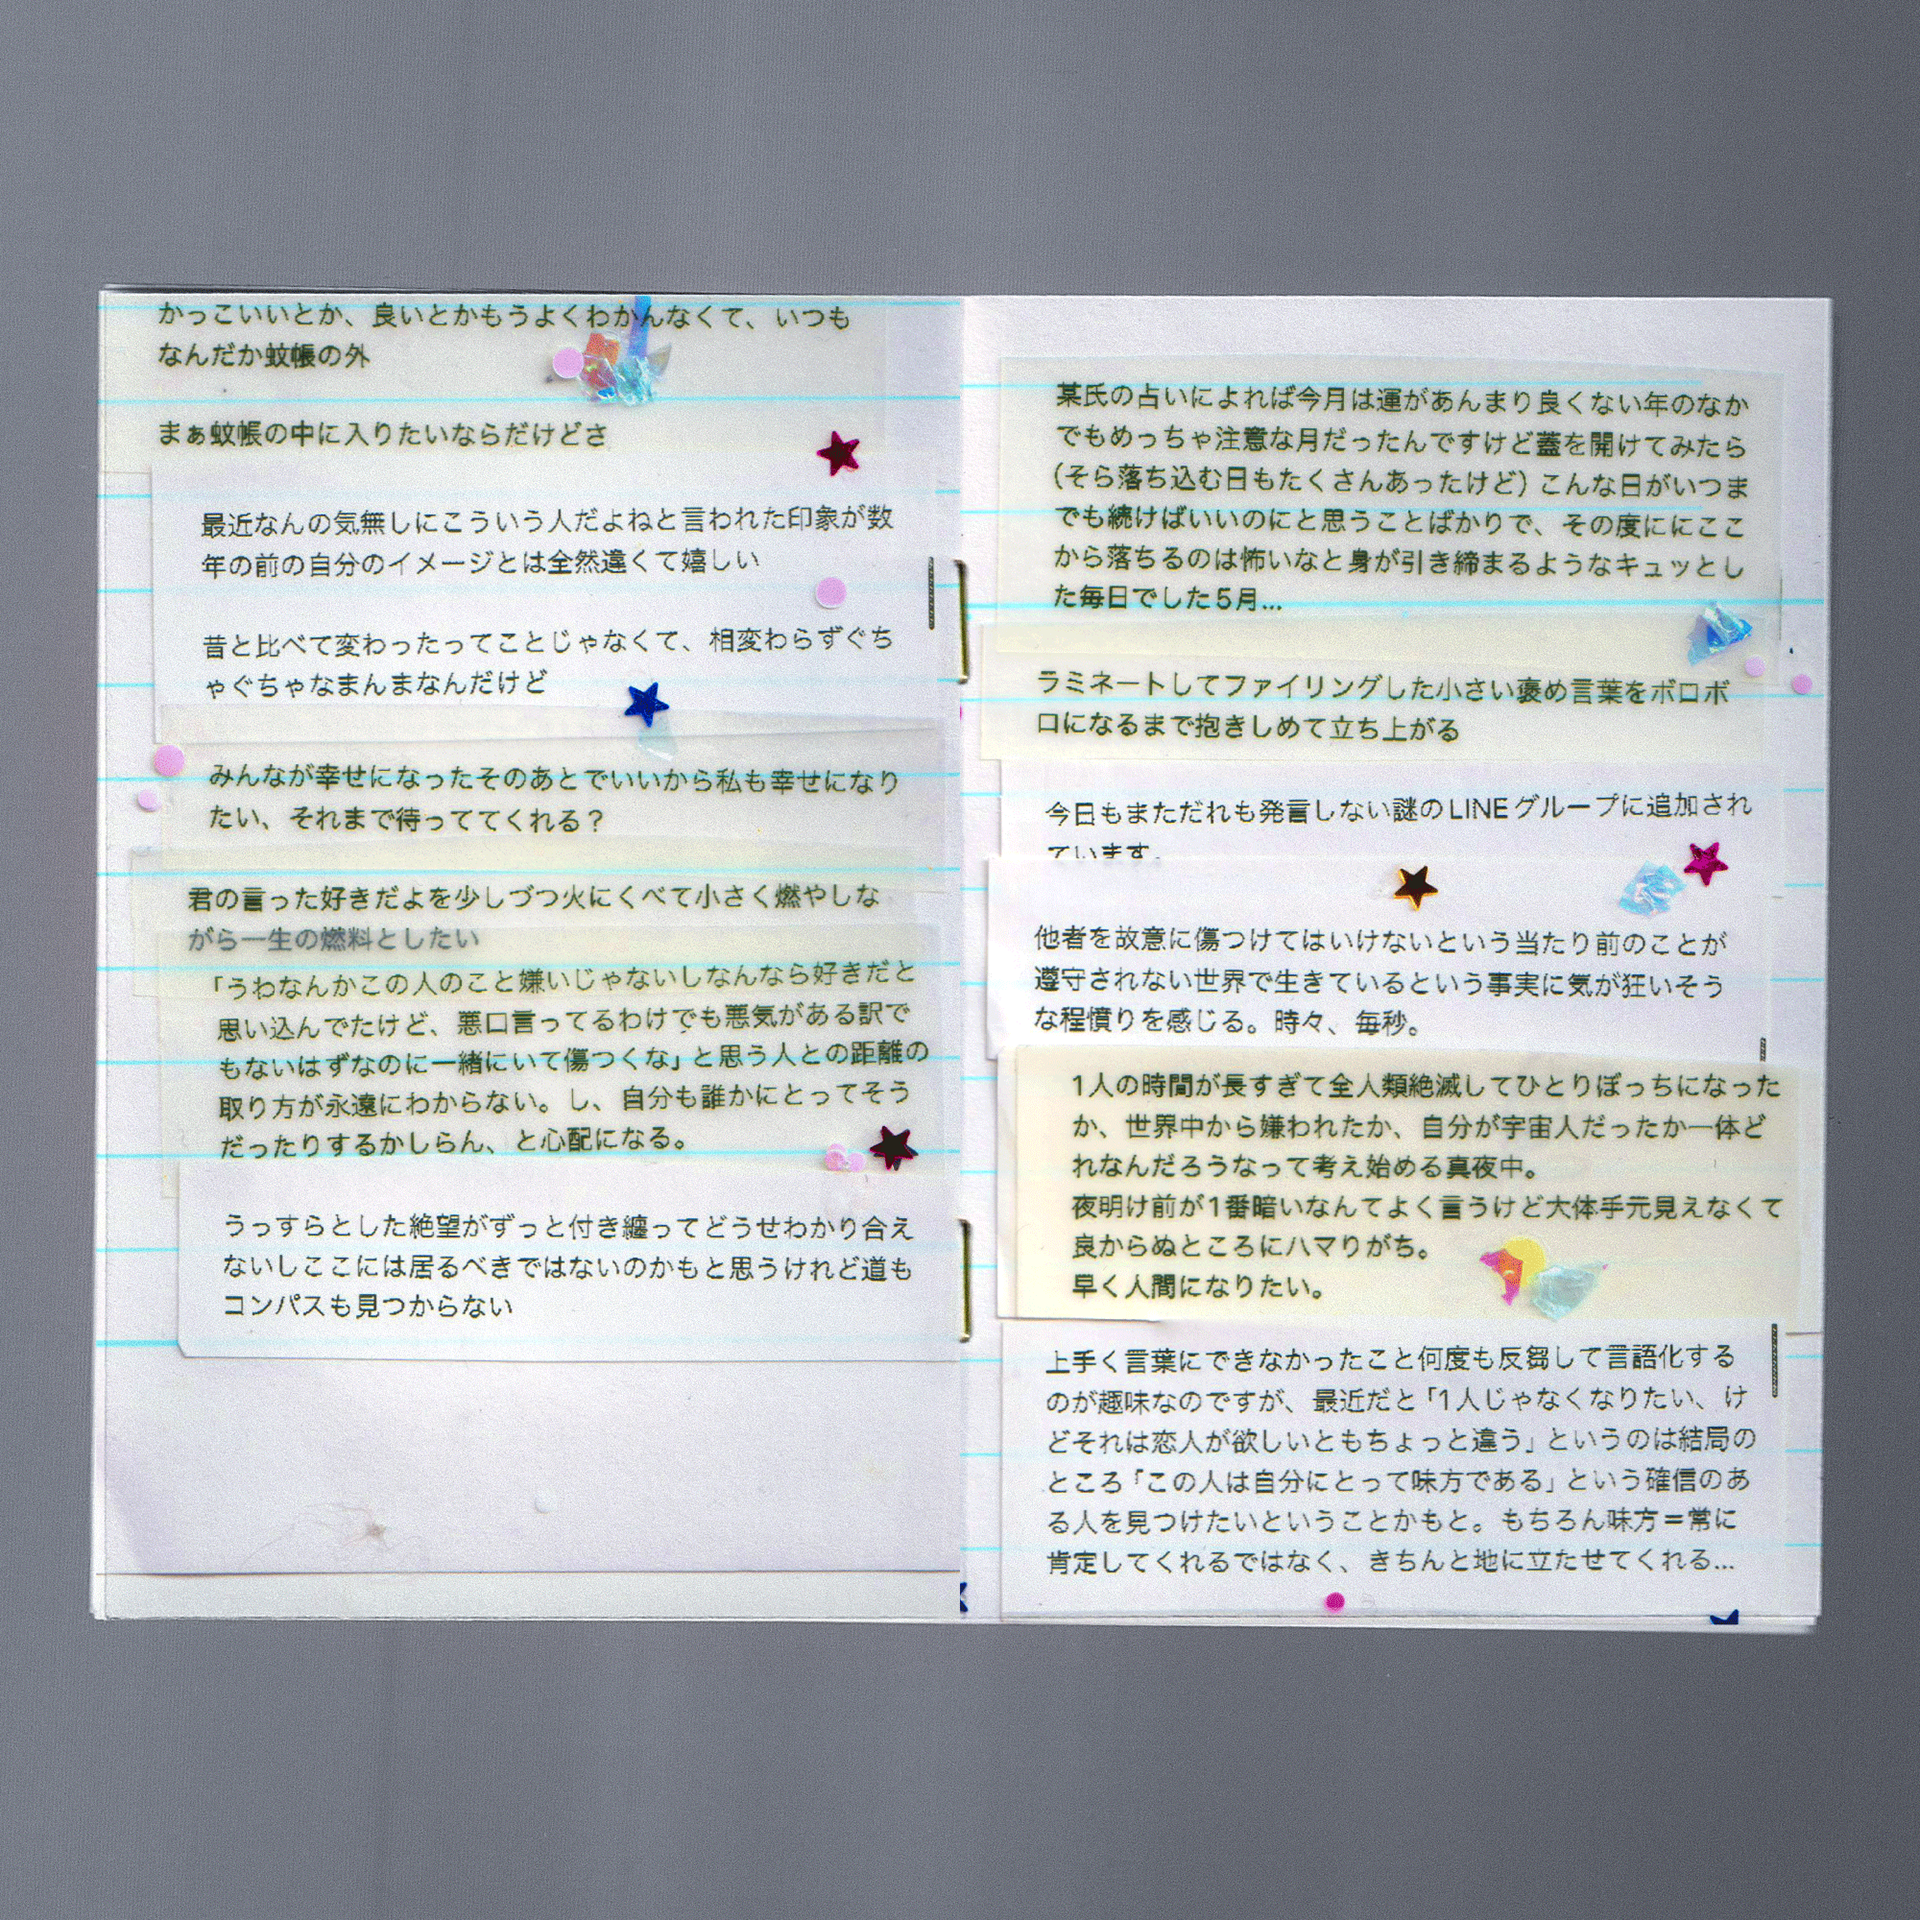 かっこいいとか、良いとかもうよくわかんなくて、いつも
なんだか蚊帳の外
まぁ蚊帳の中に入りたいならだけどさ
最近なんの気無しにこういう人だよねと言われた印象が数
年の前の自分のイメージとは全然違くて嬉しい
昔と比べて変わったってことじゃなくて、相変わらずぐち
ゃぐちゃなまんまなんだけど
みんなが幸せになったそのあとでいいから私も幸せになり
たい、それまで待っててくれる？
君の言った好きだよを少しづつ火にくべて小さく燃やしな
がら一生の燃料としたい
「うわなんかこの人のこと嫌いじゃないしなんなら好きだと
思い込んでたけど、悪口言ってるわけでも悪気がある訳で
もないはずなのに一緒にいて傷つくな」と思う人との距離の
取り方が永遠にわからない。し、自分も誰かにとってそう
だったりするかしらん、と心配になる。
うっすらとした絶望がずっと付き纏ってどうせわかり合え
ないしここには居るべきではないのかもと思うけれど道も
コンパスも見つからない
某氏の占いによれば今月は運があんまり良くない年のなか
でもめっちゃ注意な月だったんですけど蓋を開けてみたら
（そら落ち込む日もたくさんあったけど）こんな日がいつま
でも続けばいいのにと思うことばかりで、その度ににここ
から落ちるのは怖いなと身が引き締まるようなキュッとし
た毎日でした5月…
ラミネートしてファイリングした小さい褒め言葉をボロボ
ロになるまで抱きしめて立ち上がる
今日もまただれも発言しない謎のLINEグループに追加され
ています。
他者を故意に傷つけてはいけないという当たり前のことが
遵守されない世界で生きているという事実に気が狂いそう
な程憤りを感じる。時々、毎秒。
1人の時間が長すぎて全人類絶滅してひとりぼっちになった
か、世界中から嫌われたか、自分が宇宙人だったか一体ど
れなんだろうなって考え始める真夜中。
夜明け前が1番暗いなんてよく言うけど大体手元見えなくて
良からぬところにハマりがち。
早く人間になりたい。
上手く言葉にできなかったこと何度も反芻して言語化する
のが趣味なのですが、最近だと「1人じゃなくなりたい、け
どそれは恋人が欲しいともちょっと違う」というのは結局の
ところ「この人は自分にとって味方である」という確信のあ
る人を見つけたいということかもと。もちろん味方＝常に
肯定してくれるではなく、きちんと地に立たせてくれる…